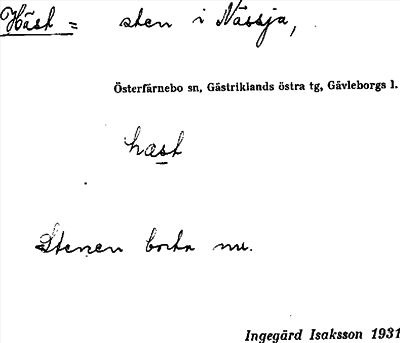 Häst = sten i Nässja,
Österfärnebo sn, Gästriklands östra tg, Gävleborgs l.
hæst
Stenen borta nu.
Ingegärd Isaksson 1931